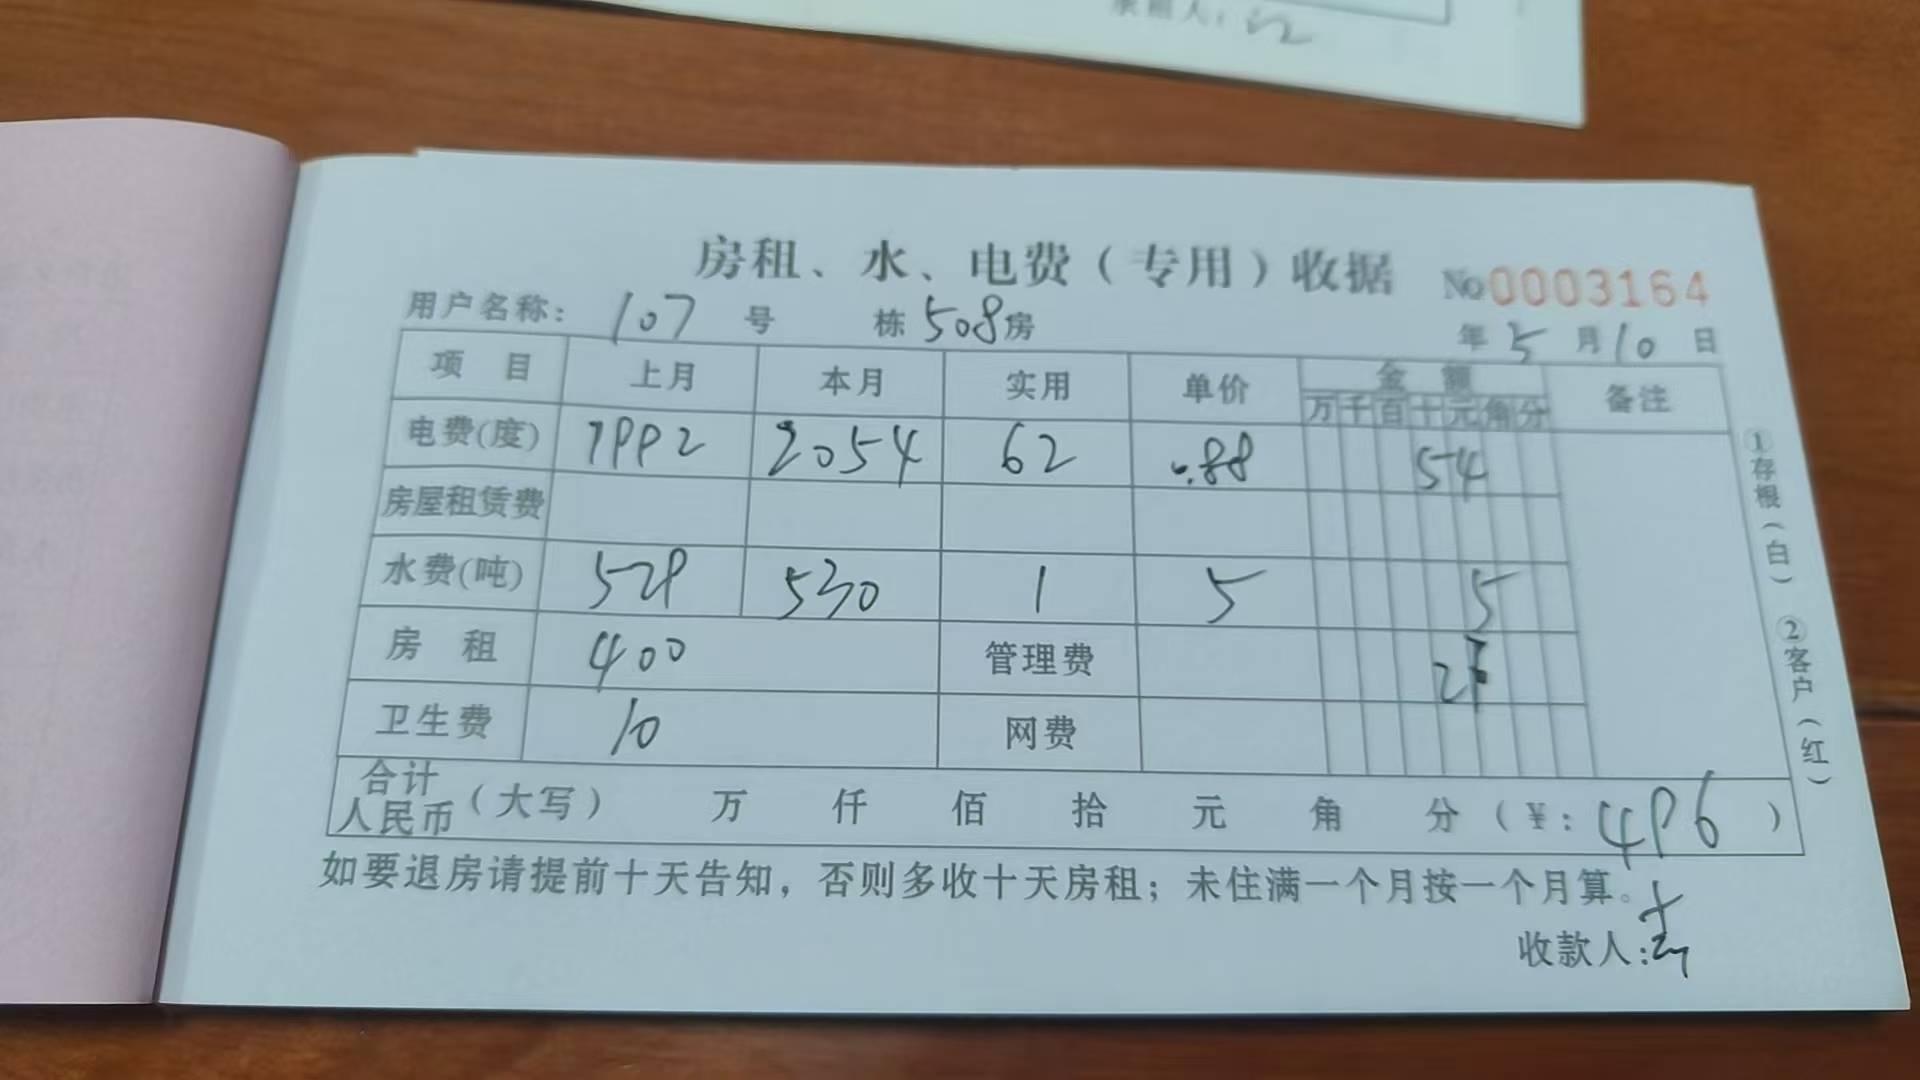 承租人：
房租、水、电费（专用）收据 No 0003164
用户名称： 107 号 栋 508 房 年 5 月 10 日
项 目 上月 本月 实用 单价 金 额 备注
万 千 百 十 元 角 分
电费(度) 1992 2054 62 0.88 54
房屋租赁费
水费(吨) 529 530 1 5 5
房 租 400 管理费
卫生费 10 网费
合计人民币（大写） 万 仟 佰 拾 元 角 分（¥: 496 ）
如要退房请提前十天告知，否则多收十天房租；未住满一个月按一个月算。
收款人:
①存根（白） ②客户（红）